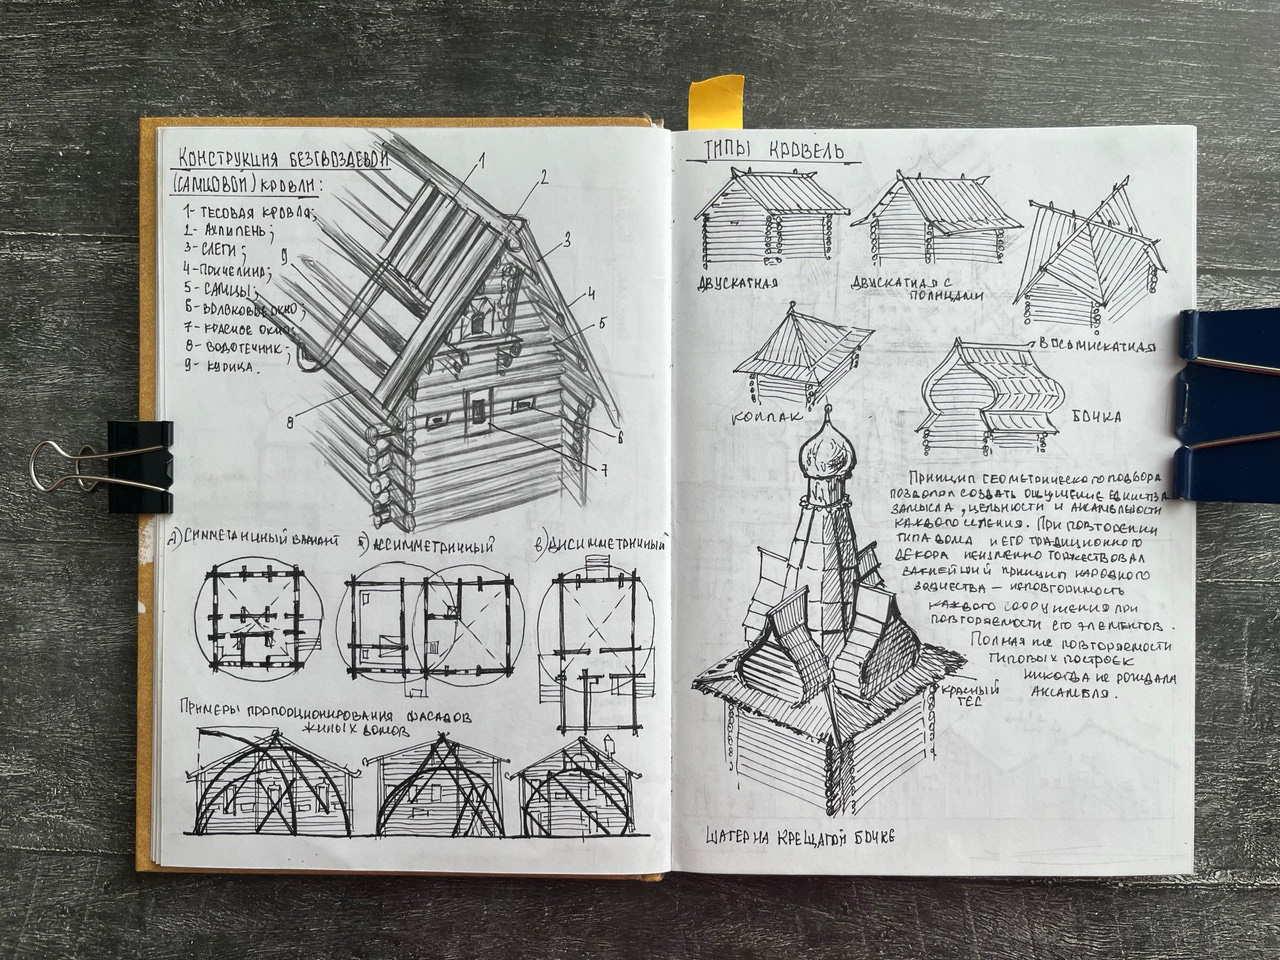 Конструкция безгвоздевой
(самцовой) кровли:
1- тесовая кровля;
2- ахлупень;
3- слеги;
4- причелина;
5- самцы;
6- волоковое окно;
7- красное окно;
8- водотечник;
9- курица.
1
2
3
4
5
6
7
8
9
а) Симметричный вариант
б) Ассимметричный
в) Дисимметричный
Примеры пропорционирования фасадов
жилых домов
Типы кровель
двускатная
двускатная с
полицами
восьмискатная
колпак
бочка
Принцип геометрического подбора
позволял создать ощущение единства
замысла, цельности и ансамбльности
каждого селения. При повторении
типа дома и его традиционного
декора неизменно торжествовал
важнейший принцип народного
зодчества – неповторимость
каждого сооружения при
повторяемости его элементов.
Полная же повторяемости
типовых построек
никогда не рождала
ансамбля.
красный
тес
Шатер на крещатой бочке